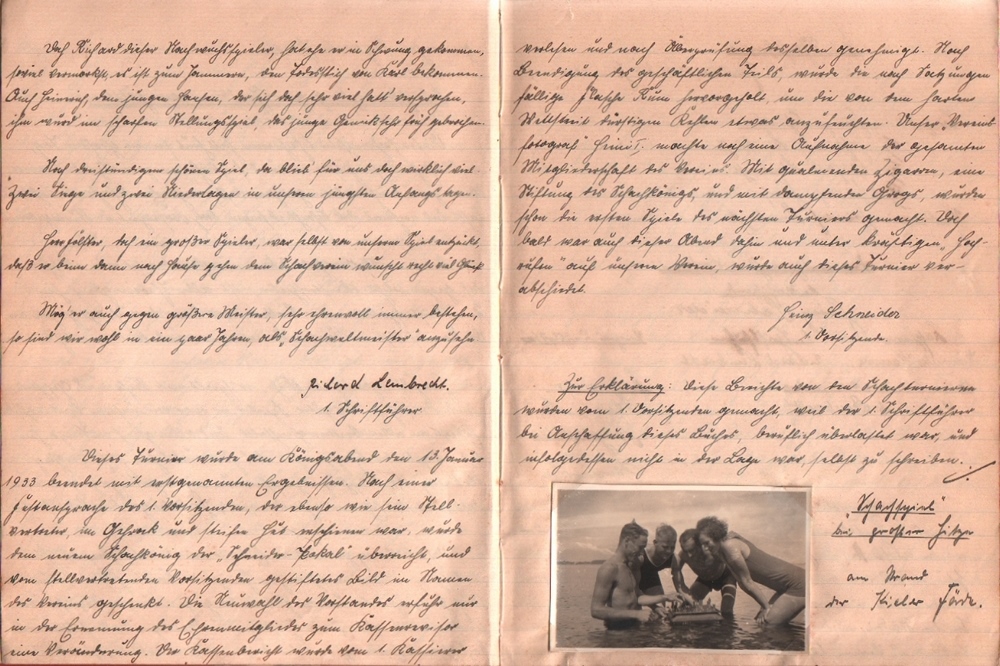 Doch Richard dieser Nachwuchsspieler, hat ehe er in Schwung gekommen,
soviel vermerkst, es ist zum Jammern, den Todesstich von Karl bekommen.
Auch Heinrich, dem jungen Hansen, der sich doch sehr viel hatt' versprochen,
ihm wurd' im scharfen Stellungsspiel, das junge Genick sehr früh gebrochen.
Nach dreistündigem schönem Spiel, da blieb für uns doch wirklich viel.
Zwei Siege und zwei Niederlagen in unseren jüngsten Anfangstagen.
Herr Hölster, doch ein großer Spieler, war selbst von unserm Spiel entzückt,
daß er beim dann nach Hause gehn dem Schachverein wünscht recht viel Glück
Mög' er auch gegen größere Meister, sehr ehrenvoll immer bestehen,
so sind wir wohl in ein paar Jahren, als „Schachweltmeister" anzusehn
Richard Lembrecht.
1. Schriftführer
Dieses Turnier wurde am Königsabend den 13. Januar
1933 beendet mit erstgenannten Ergebnissen. Nach einer
Festansprache des 1. Vorsitzenden, der ebenso wie sein Stell-
vertreter, im Gehrock und steifen Hut erschienen war, wurde
dem neuen Schachkönig der „Schneider-Pokal" überreicht, und
vom stellvertretenden Vorsitzenden gestiftetes Bild im Namen
des Vereins geschenkt. Die Neuwahl des Vorstandes erfuhr nur
in der Ernennung des Ehrenmitgliedes zum Kassenrevisor
eine Veränderung. Der Kassenbericht wurde vom 1. Kassierer
verlesen und nach Überprüfung desselben genehmigt. Nach
Beendigung des geschäftlichen Teils, wurde die nach Satzungen
fällige Flasche Rum hervorgeholt, um die von dem harten
Wettstreit durstigen Kehlen etwas anzufeuchten. Unser „Vereins-
fotograf Heini", machte noch eine Aufnahme der gesamten
Mitgliedschaft des Vereins. Mit qualmenden Zigarren, eine
Stiftung des Schachkönigs, und mit dampfenden Grogs, wurden
schon die ersten Spiele des nächsten Turniers gemacht. Doch
bald war auch dieser Abend dahin und unter kräftigen „Hoch-
rufen" auf unseren Verein, wurde auch dieses Turnier ver-
abschiedet.
Heinz Schneider
1. Vorsitzende.
Zur Erklärung: Diese Berichte von den Schachturnieren
wurden vom 1. Vorsitzenden gemacht, weil der 1. Schriftführer
bei Anschaffung dieses Buches, beruflich überlastet war, und
infolgedessen nicht in der Lage war, selbst zu schreiben.
„Schachspiel"
bei großer Hitze
am Strand
der Kieler Förde.